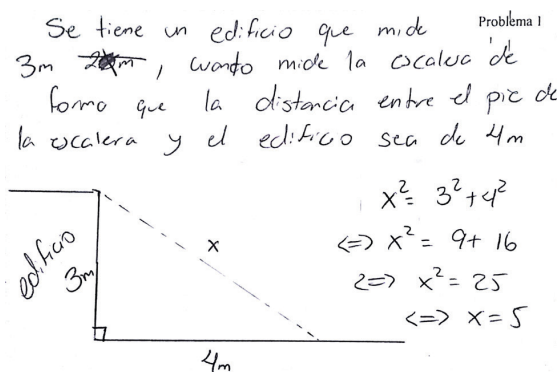 Problema 1
Se tiene un edificio que mide
3m, cuanto mide la escalera de
forma que la distancia entre el pie de
la escalera y el edificio sea de 4m
x² = 3² + 4²
<=> x² = 9 + 16
<=> x² = 25
<=> x = 5
edificio
3m
x
4m